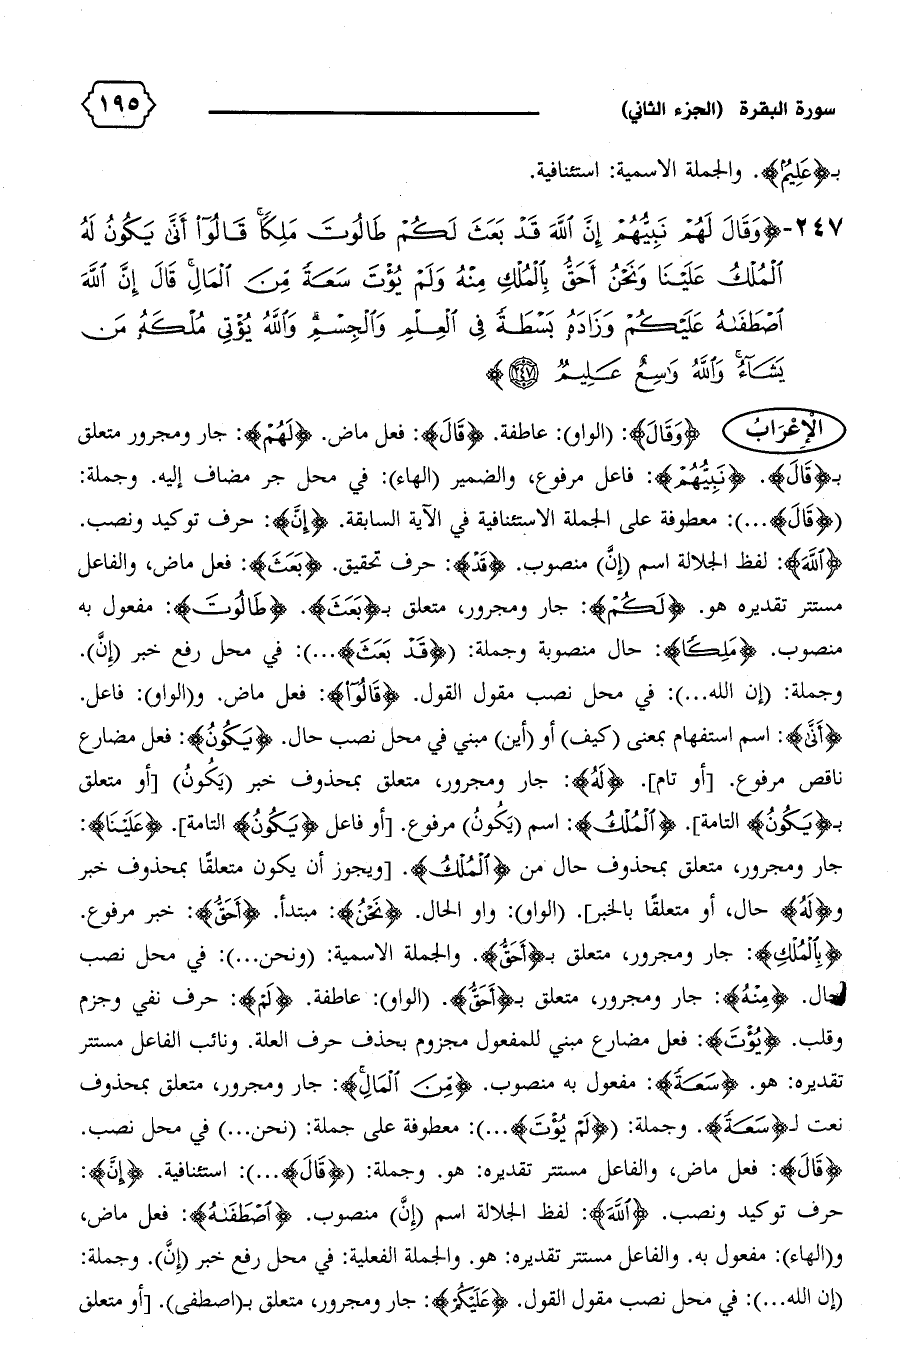 سورة البقرة (الجزء الثاني) ١٩٥
بـ﴿عَلِيمٌ﴾. والجملة الاسمية: استئنافية.
٢٤٧-﴿وَقَالَ لَهُمْ نَبِيُّهُمْ إِنَّ ٱللَّهَ قَدْ بَعَثَ لَكُمْ طَالُوتَ مَلِكًاۚ قَالُوٓا۟ أَنَّىٰ يَكُونُ لَهُ
ٱلْمُلْكُ عَلَيْنَا وَنَحْنُ أَحَقُّ بِٱلْمُلْكِ مِنْهُ وَلَمْ يُؤْتَ سَعَةً مِّنَ ٱلْمَالِۚ قَالَ إِنَّ ٱللَّهَ
ٱصْطَفَىٰهُ عَلَيْكُمْ وَزَادَهُۥ بَسْطَةً فِى ٱلْعِلْمِ وَٱلْجِسْمِۖ وَٱللَّهُ يُؤْتِى مُلْكَهُۥ مَن
يَشَآءُۚ وَٱللَّهُ وَٰسِعٌ عَلِيمٌ ٢٤٧﴾
الْإِعْرَابُ ﴿وَقَالَ﴾: (الواو): عاطفة. ﴿قَالَ﴾: فعل ماض. ﴿لَهُمْ﴾: جار ومجرور متعلق
بـ﴿قَالَ﴾. ﴿نَبِيُّهُمْ﴾: فاعل مرفوع، والضمير (الهاء): في محل جر مضاف إليه. وجملة:
(﴿قَالَ﴾...): معطوفة على الجملة الاستئنافية في الآية السابقة. ﴿إِنَّ﴾: حرف توكيد ونصب.
﴿ٱللَّهَ﴾: لفظ الجلالة اسم (إنَّ) منصوب. ﴿قَدْ﴾: حرف تحقيق. ﴿بَعَثَ﴾: فعل ماض، والفاعل
مستتر تقديره هو. ﴿لَكُمْ﴾: جار ومجرور، متعلق بـ﴿بَعَثَ﴾. ﴿طَالُوتَ﴾: مفعول به
منصوب. ﴿مَلِكًا﴾: حال منصوبة وجملة: (﴿قَدْ بَعَثَ﴾...): في محل رفع خبر (إن).
وجملة: (إن الله...): في محل نصب مقول القول. ﴿قَالُوٓا۟﴾: فعل ماض. و(الواو): فاعل.
﴿أَنَّىٰ﴾: اسم استفهام بمعنى (كيف) أو (أين) مبني في محل نصب حال. ﴿يَكُونُ﴾: فعل مضارع
ناقص مرفوع. [أو تام]. ﴿لَهُ﴾: جار ومجرور، متعلق بمحذوف خبر (يَكُونُ) [أو متعلق
بـ﴿يَكُونُ﴾ التامة]. ﴿ٱلْمُلْكُ﴾: اسم (يَكُونُ) مرفوع. [أو فاعل ﴿يَكُونُ﴾ التامة]. ﴿عَلَيْنَا﴾:
جار ومجرور، متعلق بمحذوف حال من ﴿ٱلْمُلْكُ﴾. [ويجوز أن يكون متعلقًا بمحذوف خبر
و﴿لَهُ﴾ حال، أو متعلقًا بالخبر]. (الواو): واو الحال. ﴿نَحْنُ﴾: مبتدأ. ﴿أَحَقُّ﴾: خبر مرفوع.
﴿بِٱلْمُلْكِ﴾: جار ومجرور، متعلق بـ﴿أَحَقُّ﴾. والجملة الاسمية: (ونحن...): في محل نصب
حال. ﴿مِنْهُ﴾: جار ومجرور، متعلق بـ﴿أَحَقُّ﴾. (الواو): عاطفة. ﴿لَمْ﴾: حرف نفي وجزم
وقلب. ﴿يُؤْتَ﴾: فعل مضارع مبني للمفعول مجزوم بحذف حرف العلة. ونائب الفاعل مستتر
تقديره: هو. ﴿سَعَةً﴾: مفعول به منصوب. ﴿مِّنَ ٱلْمَالِۚ﴾: جار ومجرور، متعلق بمحذوف
نعت لـ﴿سَعَةً﴾. وجملة: (﴿لَمْ يُؤْتَ﴾...): معطوفة على جملة: (نحن...) في محل نصب.
﴿قَالَ﴾: فعل ماض، والفاعل مستتر تقديره: هو. وجملة: (﴿قَالَ﴾...): استئنافية. ﴿إِنَّ﴾:
حرف توكيد ونصب. ﴿ٱللَّهَ﴾: لفظ الجلالة اسم (إنَّ) منصوب. ﴿ٱصْطَفَىٰهُ﴾: فعل ماض،
و(الهاء): مفعول به. والفاعل مستتر تقديره: هو. والجملة الفعلية: في محل رفع خبر (إنَّ). وجملة:
(إن الله...): في محل نصب مقول القول. ﴿عَلَيْكُمْ﴾: جار ومجرور، متعلق بـ(اصطفى). [أو متعلق